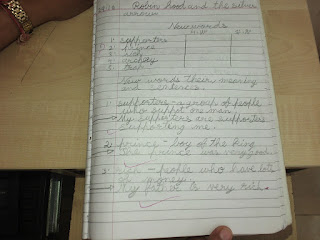 Robin hood and the silver
arrow
New words
1. supporters
2. prince
3. rich
4. archery
5.
New words their meaning
and sentences.
1. supporters - a group of people
who support one man
My supporters are supporters
supporting me.
2. prince - boy of the king
The prince was very good.
3. rich - people who have lots
of money.
My father is very rich.